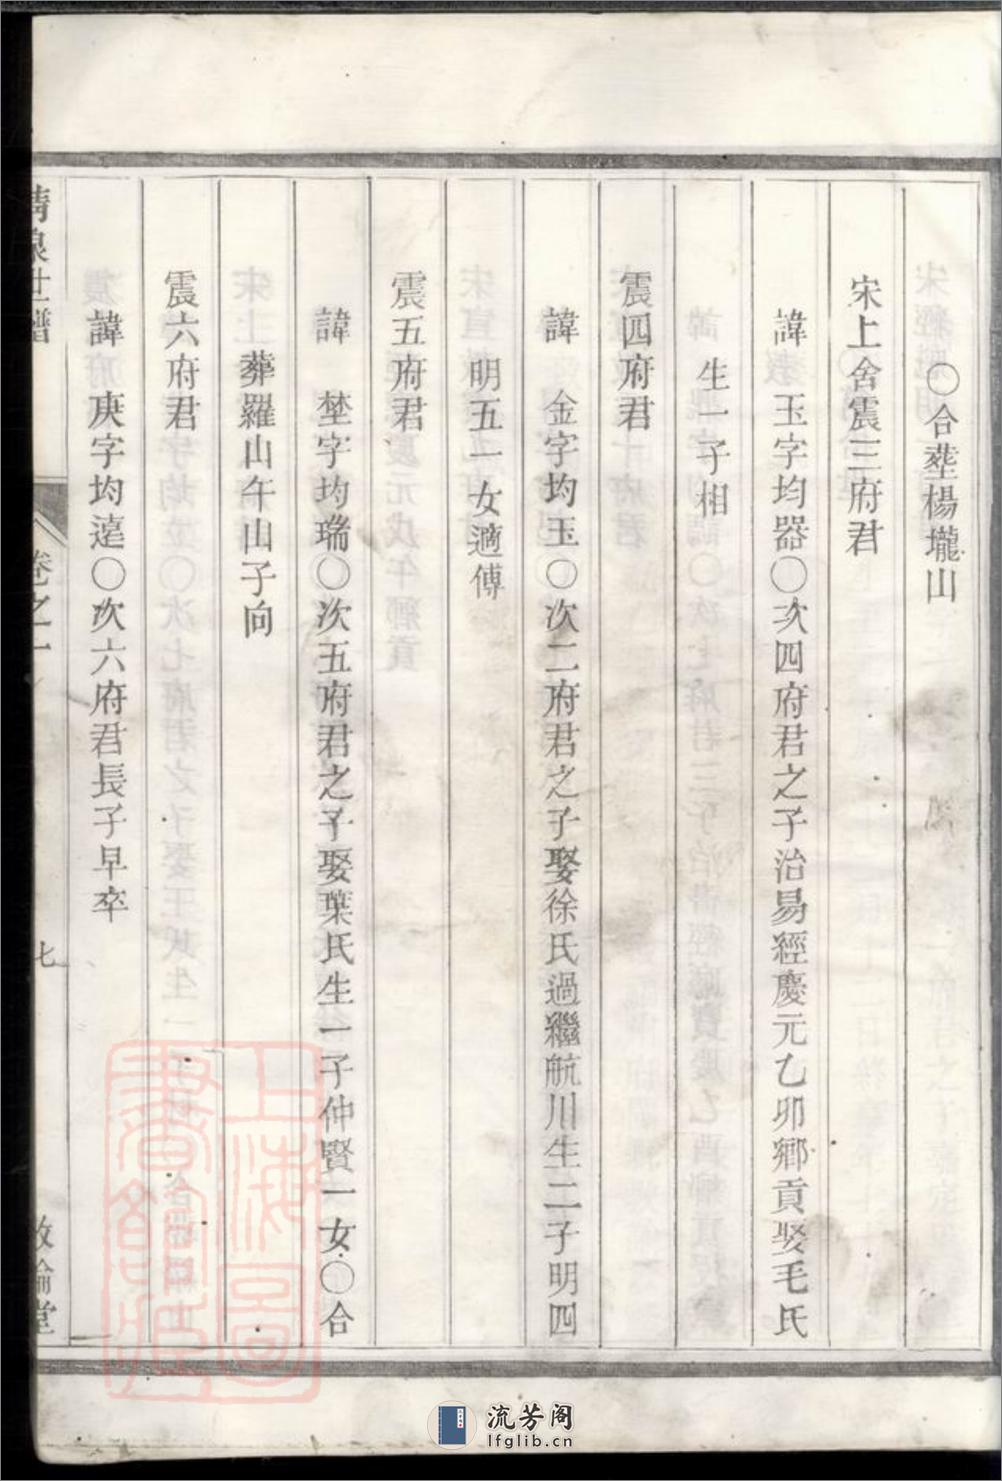 ○合塟楊壠山
宋上舍震三府君
諱　玉字均器○次四府君之子治易經慶元乙卯鄉貢娶毛氏
生一子相
震四府君
諱　金字均玉○次二府君之子娶徐氏過繼航川生二子明四
明五一女適傅
震五府君
諱　埜字均瑞○次五府君之子娶葉氏生一子仲賢一女○合
葬羅山午山子向
震六府君
諱　庚字均遠○次六府君長子早卒
卷之一
七
敦倫堂
上海圖書館藏
流芳阁
lfglib.cn